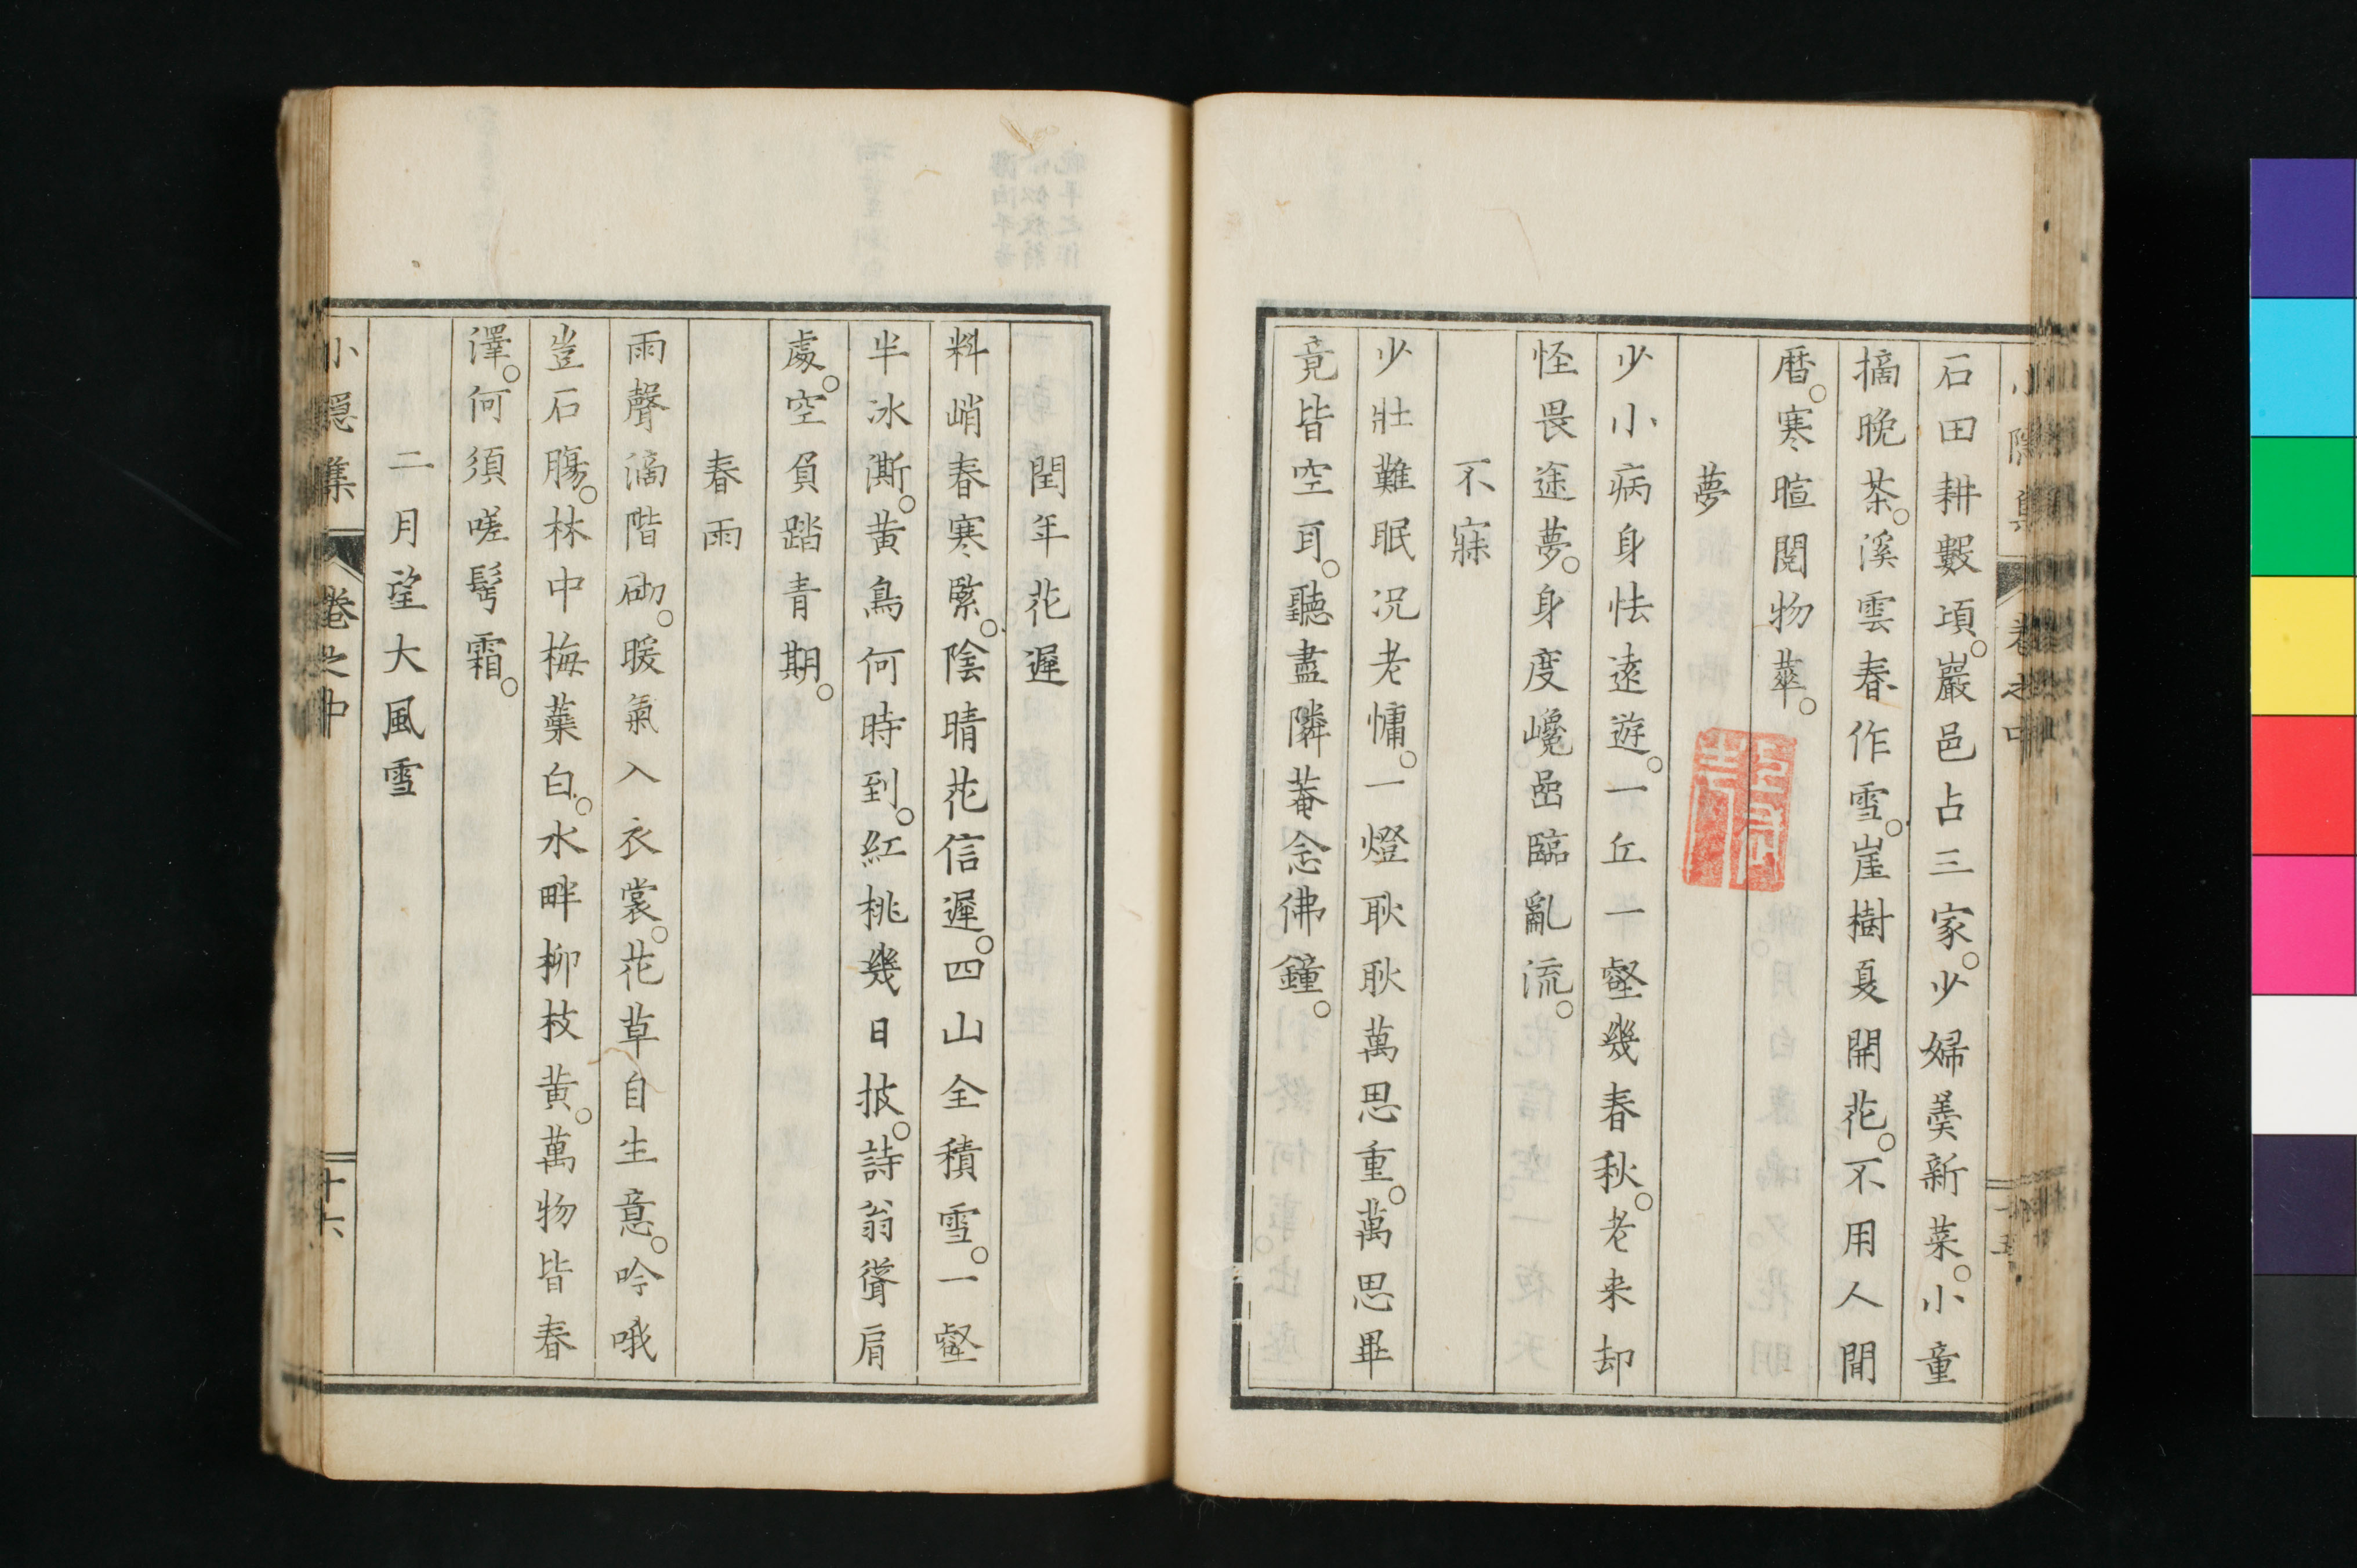 石田耕數項。巖邑占三家。少婦羮新菜。小童
摘晚茶。溪雲春作雪。崖樹夏開花。不用人間
暦。寒暄閱物華。
夢
少小病身怯遠遊。一丘一壑幾春秋。老来却
怪畏途夢。身度巉嵒臨亂流。
不寐
少壯難眠况老慵。一燈耿耿萬思重。萬思畢
竟皆空耳。聽盡隣菴念佛鐘。
閏年花遲
料峭春寒緊。陰晴花信遲。四山全積雪。一壑
半冰澌。黄鳥何時到。紅桃幾日披。詩翁聳肩
處。空負踏青期。
春雨
雨聲滴階砌。暖氣入衣裳。花草自生意。吟哦
豈石腸。林中梅蘂白。水畔柳枝黄。萬物皆春
澤。何須嗟鬢霜。
二月望大風雪
小隱集 卷之中 十六